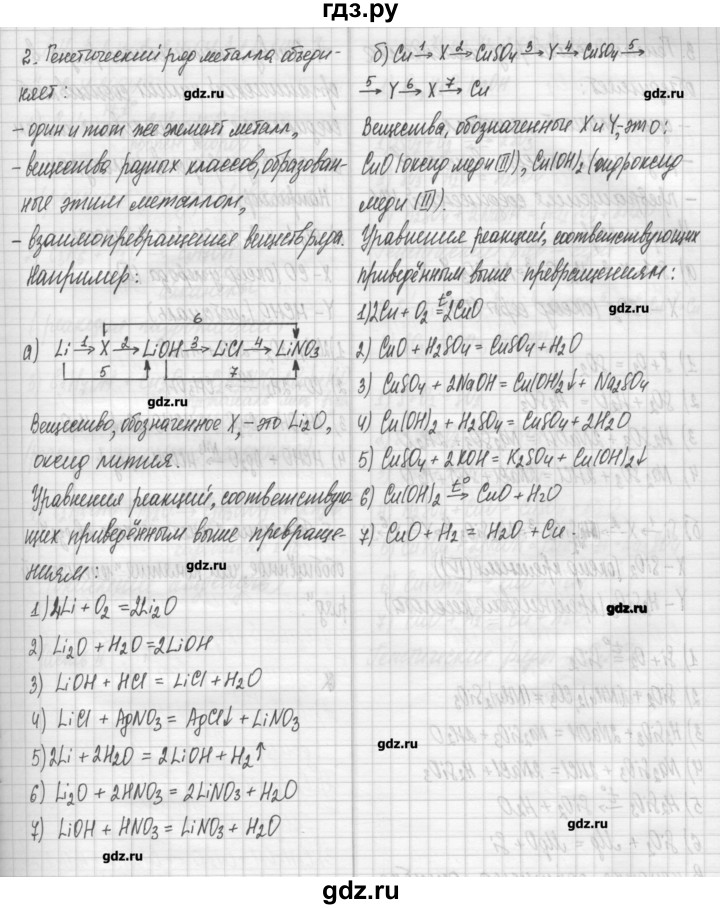 гдз.ру
2. Генетический ряд металла объеди-
няет:
gdz.ru
- один и тот же элемент металл,
- вещества разных классов, образован-
ные этим металлом,
- взаимопревращения веществ ряда.
Например:
6
а) Li 1→ X 2→ LiOH 3→ LiCl 4→ LiNO₃
5 7
gdz.ru
Вещество, обозначенное X, - это Li₂O,
оксид лития.
Уравнения реакций, соответствую-
щих приведённым выше превраще-
ниям:
gdz.ru
1) 4Li + O₂ = 2Li₂O
2) Li₂O + H₂O = 2LiOH
3) LiOH + HCl = LiCl + H₂O
4) LiCl + AgNO₃ = AgCl↓ + LiNO₃
5) 2Li + 2H₂O = 2LiOH + H₂↑
6) Li₂O + 2HNO₃ = 2LiNO₃ + H₂O
7) LiOH + HNO₃ = LiNO₃ + H₂O
gdz.ru
б) Cu 1→ X 2→ CuSO₄ 3→ Y 4→ CuSO₄ 5→
5→ Y 6→ X 7→ Cu
gdz.ru
Вещества, обозначенные X и Y, - это:
CuO (оксид меди (II)), Cu(OH)₂ (гидроксид
меди (II)).
Уравнения реакций, соответствующих
приведённым выше превращениям:
1) 2Cu + O₂ t°= 2CuO
gdz.ru
2) CuO + H₂SO₄ = CuSO₄ + H₂O
3) CuSO₄ + 2NaOH = Cu(OH)₂↓ + Na₂SO₄
4) Cu(OH)₂ + H₂SO₄ = CuSO₄ + 2H₂O
5) CuSO₄ + 2KOH = K₂SO₄ + Cu(OH)₂↓
6) Cu(OH)₂ t°→ CuO + H₂O
gdz.ru
7) CuO + H₂ = H₂O + Cu.
gdz.ru
gdz.ru
gdz.ru
gdz.ru